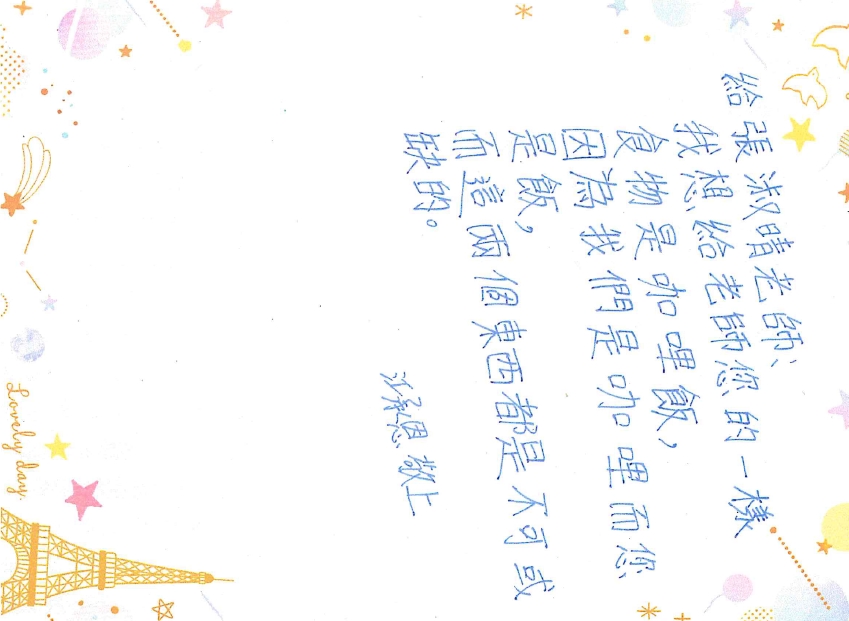 給張淑晴老師、
我想給老師您的一樣
食物是咖哩飯，
因為我們是咖哩而您
是飯，
而這兩個東西都是不可或
缺的。
江承恩 敬上
Lovely day.